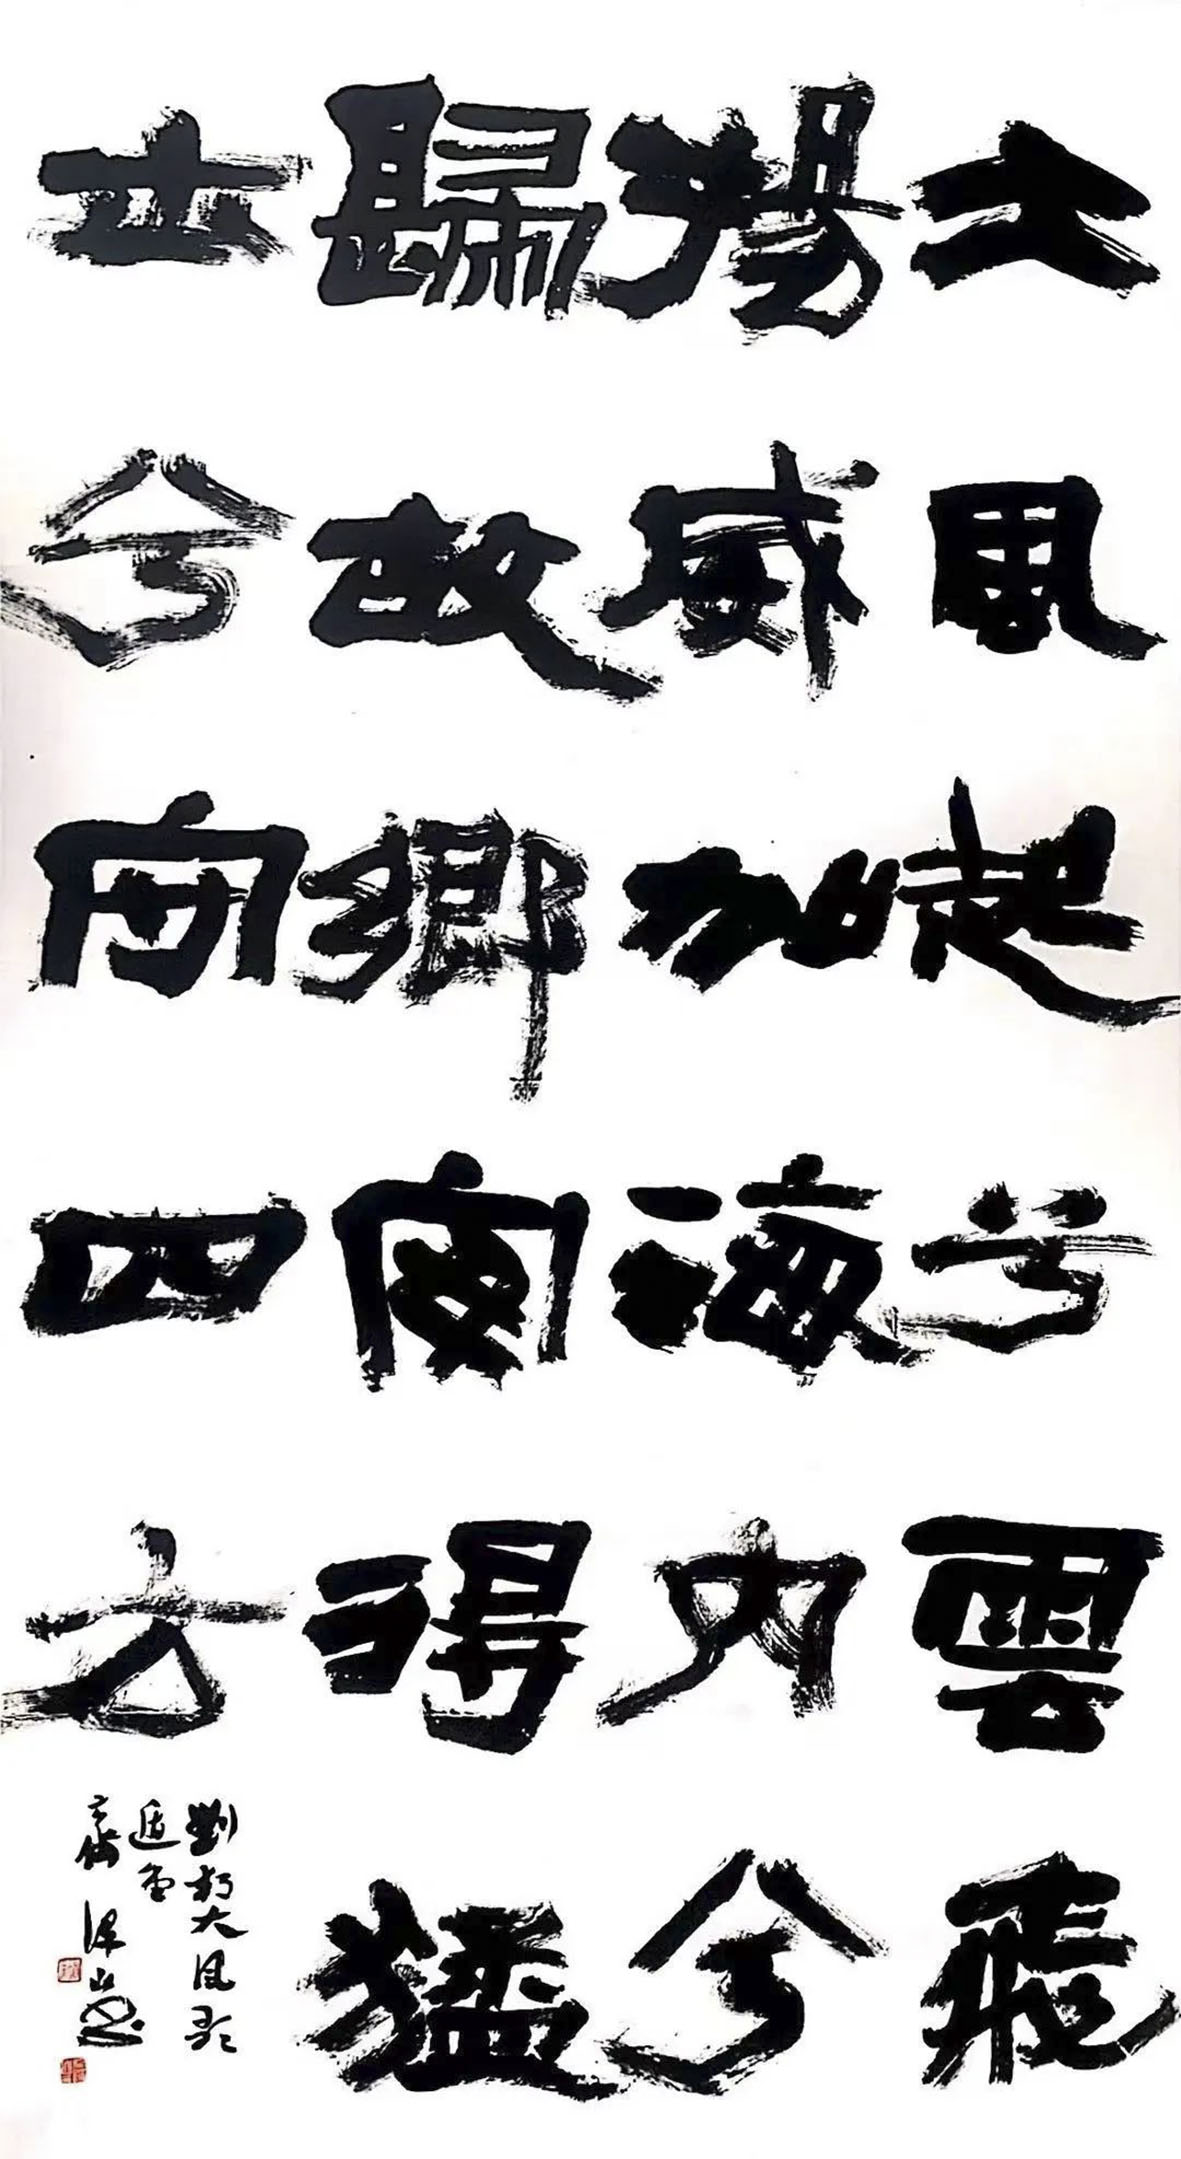 大風起兮雲飛
揚威加海内兮
歸故鄉安得猛
士兮守四方
劉邦大風歌